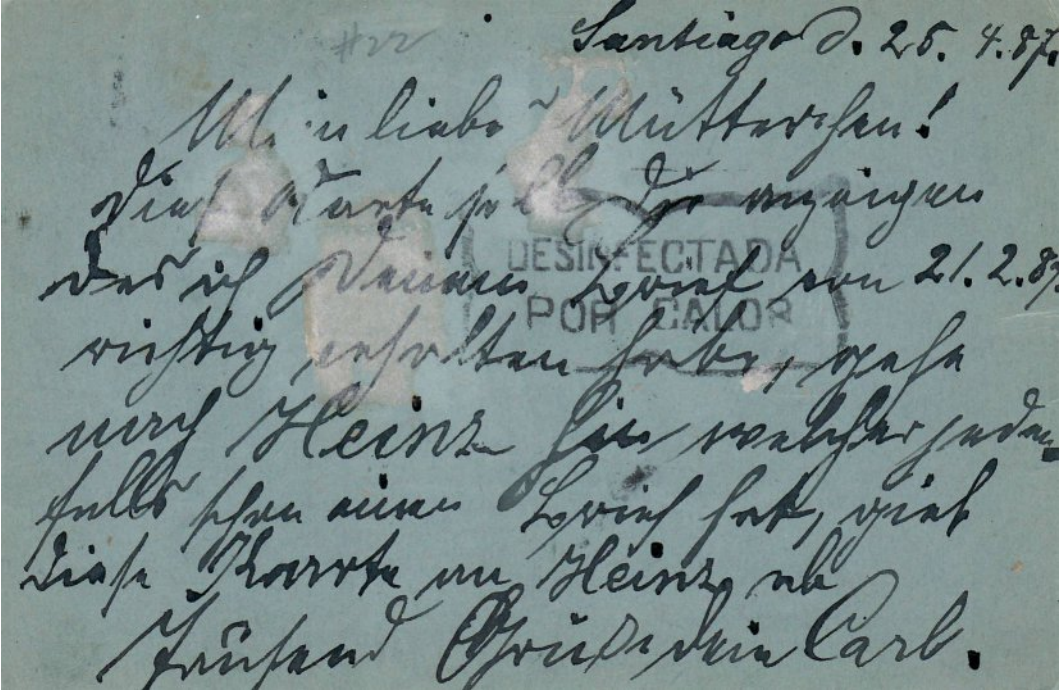 #22
Santiago d. 25. 4. 87.
Mein liebes Mütterchen!
Diese Karte soll Dir anzeigen
DESINFECTADA
das ich Deinen Brief vom 21.2.87.
POR CALOR
richtig erhalten habe, gehe
nach Heinz hin welcher jeden
falls schon einen Brief hat, gieb
diese Karte an Heinz ab
Tausend Grüße dein Carl.